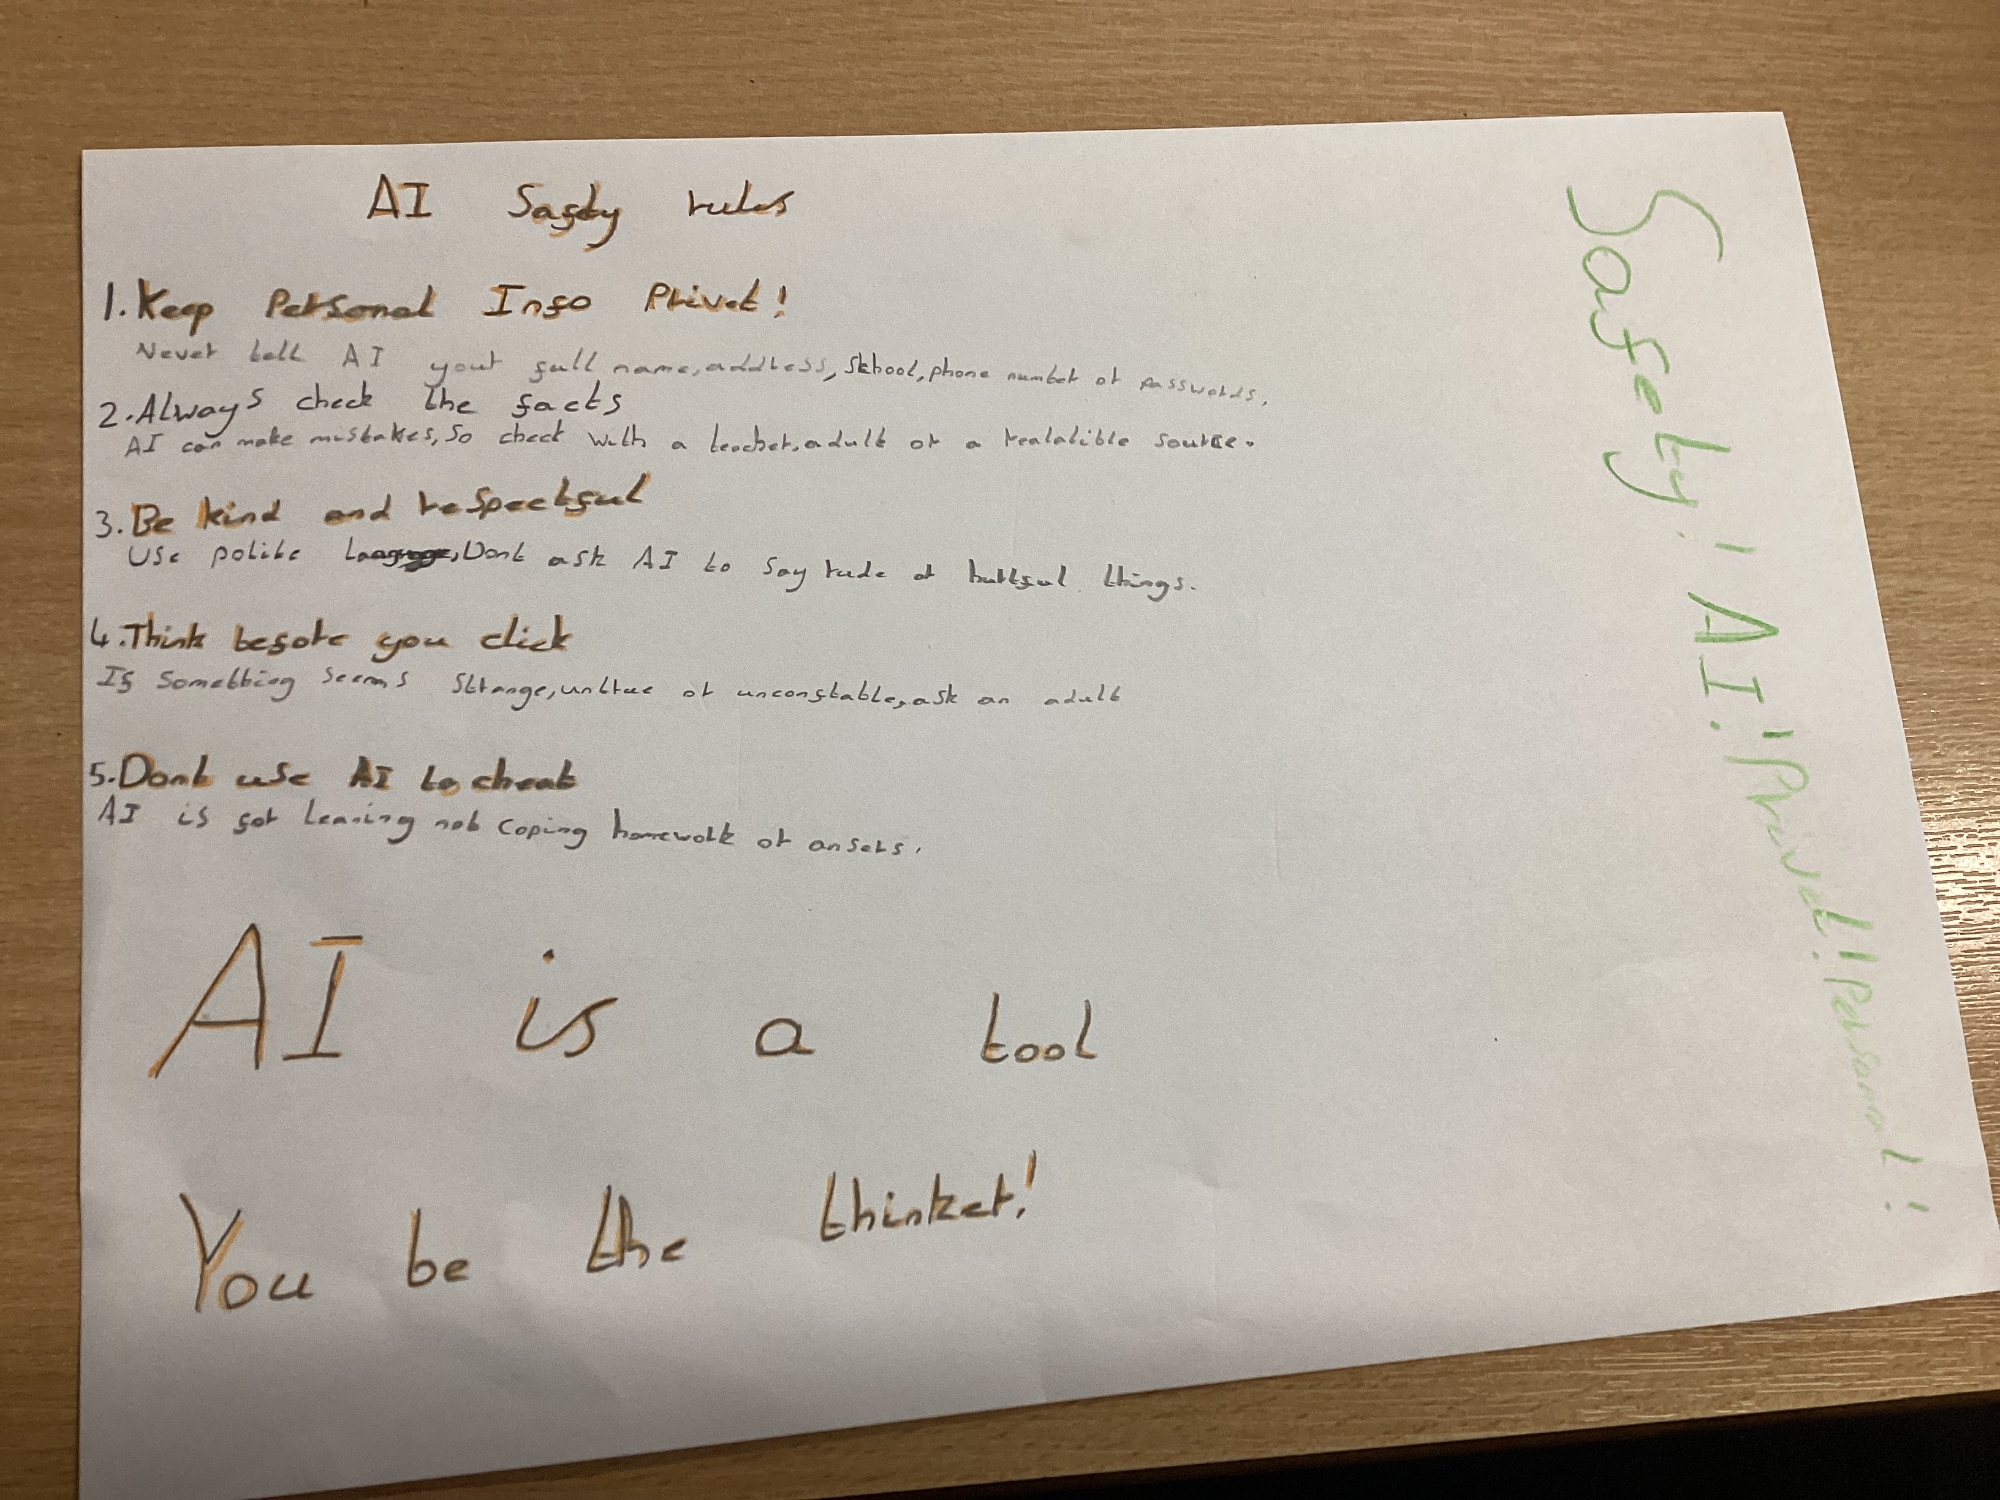 AI Safty rules
1. Keep Personal Info Privet!
Never tell AI your full name, address, School, phone number or passwords.
2. Always check the facts
AI can make mistakes, So check with a teacher, adult or a realalible source.
3. Be kind and respectful
Use polite , Dont ask AI to say rude or hurtful things.
4. Think before you click
If Something seems strange, untrue or unconftable, ask an adult
5. Dont use AI to cheat
AI is for leaning not coping homework or ansers.
AI is a tool
You be the thinker!
Safety! AI! Privet! Personal!